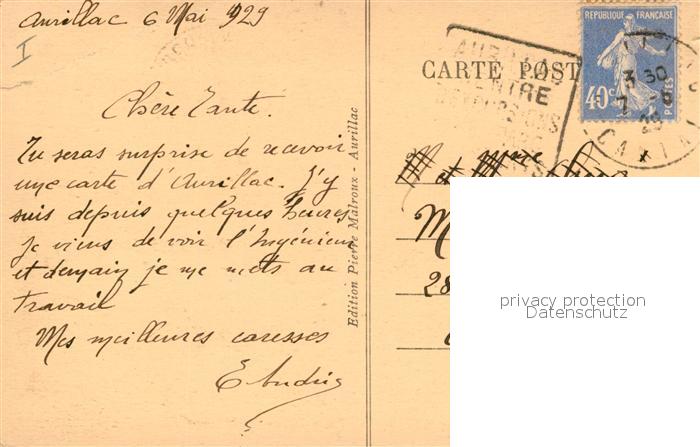 Aurillac 6 Mai 1929
I
Chère Tante.
Tu seras surprise de recevoir
une carte d'Aurillac. J'y
suis depuis quelques heures
Je viens de voir l'Ingénieur
et demain je me mets au
travail
Mes meilleures caresses
Edition Pierre Malroux - Aurillac
CARTE POST
REPUBLIQUE FRANÇAISE
40c
POSTES
CENTRE
D'EXCURSIONS
3 30
7 - 5
29
CANTAL
et Mme
M
28
privacy protection
Datenschutz